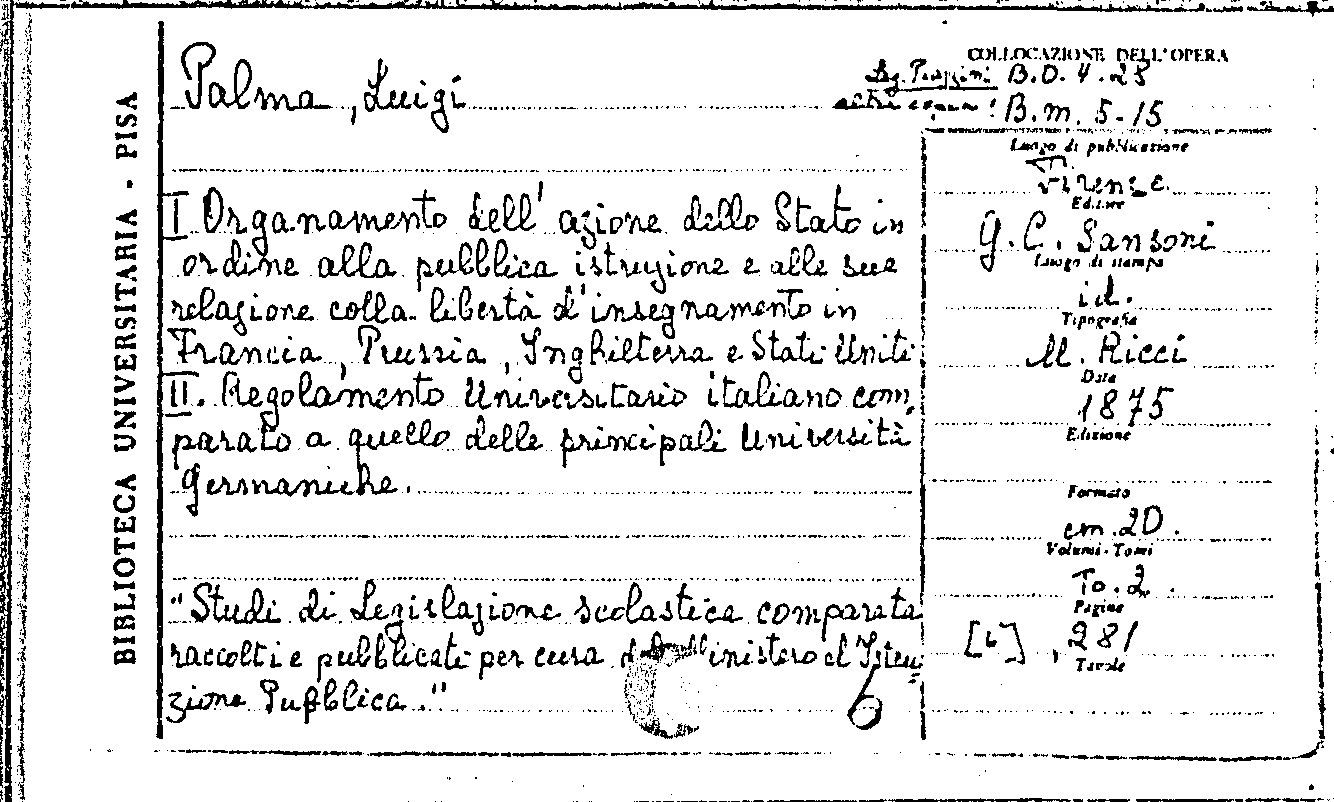 BIBLIOTECA UNIVERSITARIA - PISA
Palma, Luigi
I Organamento dell'azione dello Stato in
ordine alla pubblica istruzione e alle sue
relazione colla libertà d'insegnamento in
Francia, Prussia, Inghilterra e Stati Uniti
II. Regolamento Universitario italiano com,
parato a quello delle principali Università
Germaniche.
"Studi di Legislazione scolastica comparata
raccolti e pubblicati per cura del Ministero d'Istru=
zione Pubblica."
6
COLLOCAZIONE DELL'OPERA
B.D.4.25
B.m. 5-15
Luogo di pubblicazione
Firenze
Editore
G. C. Sansoni
Luogo di stampa
id.
Tipografia
M. Ricci
Data
1875
Edizione
Formato
cm. 20.
Volumi-Tomi
To. 2.
Pagine
[6], 281
Tavole